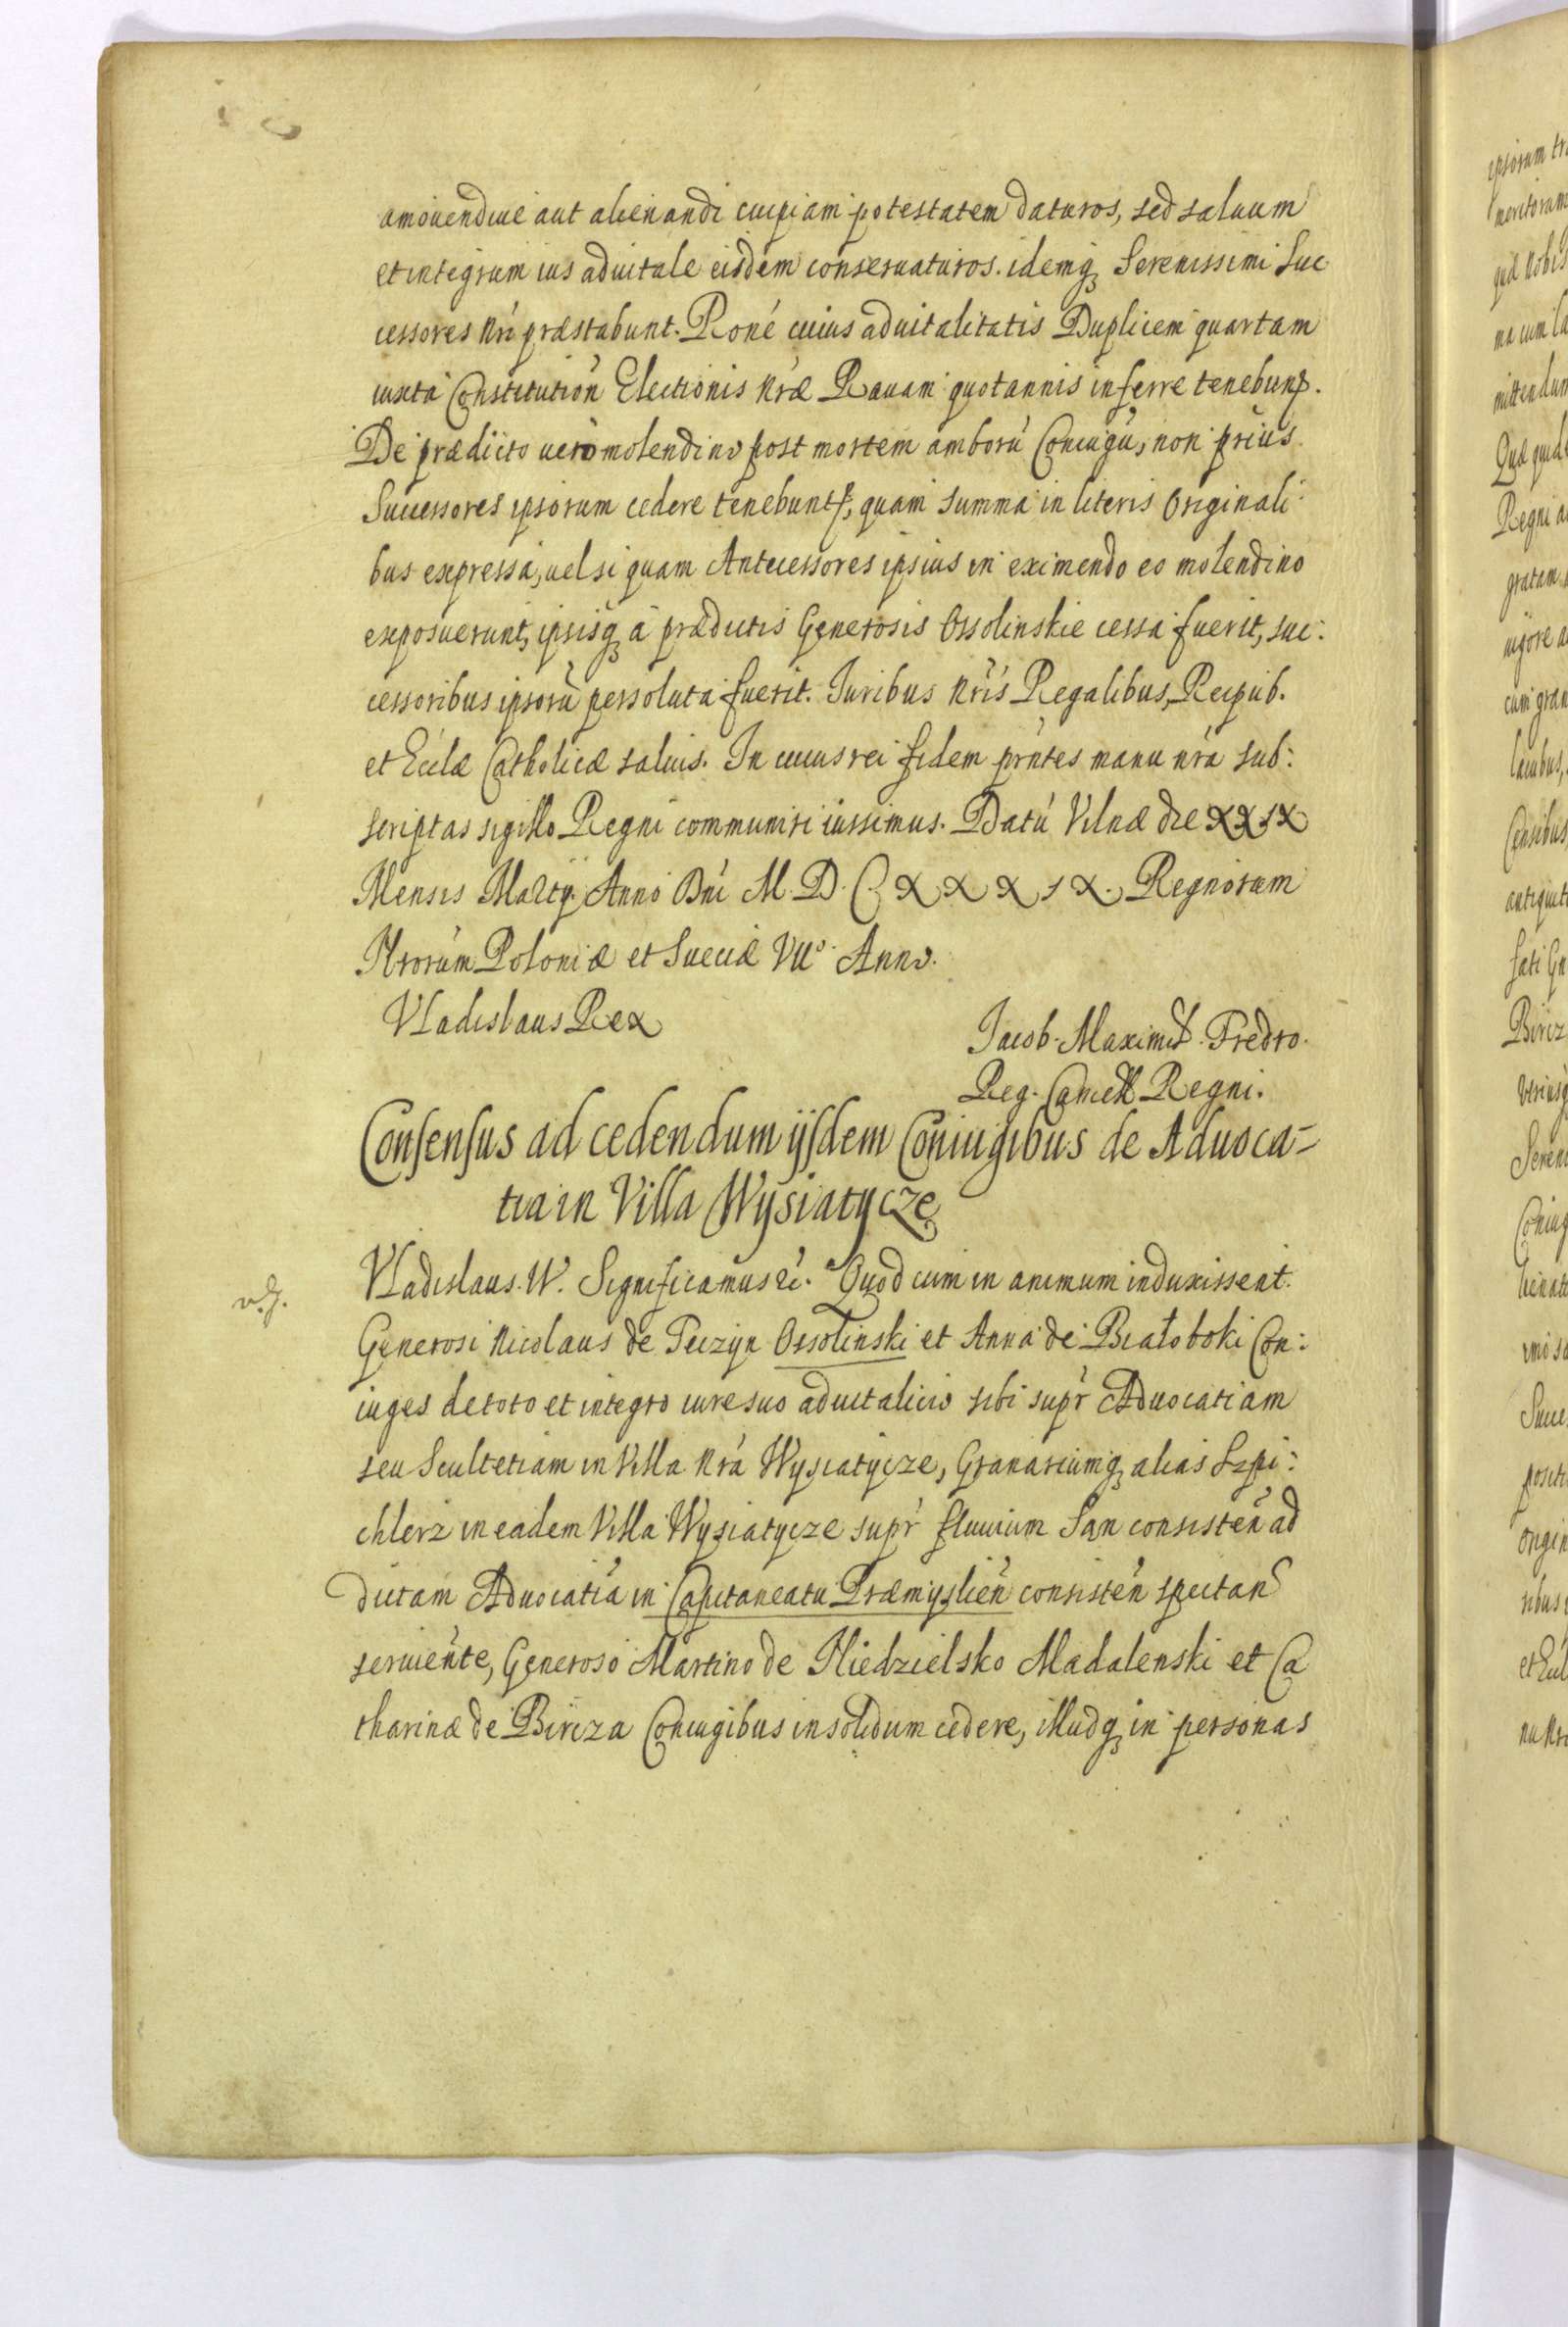 amouendiue aut alienandi cuipiam potestatem daturos, sed saluum
et integrum ius aduitale eisdem conseruaturos. idemq Serenissimi Suc
cessores nri præstabunt. Rone cuius aduitalitatis Duplicem quartam
iuxta Constitution Electionis nræ Rauam quotannis inferre tenebunt.
De prædicto uero molendino post mortem amború Coniugú, non prius
Successores ipsorum cedere tenebuntr, quam summa in literis Originali:
bus expressa, uel si quam Antecessores ipsius in eximendo eo molendino
exposuerunt, ipsisq a prædictis Generosis Ossolinskie cessa fuerit, suc:
cessoribus ipsorú persoluta fuerit. Iuribus nris Regalibus, Reipub.
et Ecclæ Catholicæ saluis. In cuius rei fidem prntes manu nra sub:
scriptas sigillo Regni communiri iussimus. Datú Vilnæ die XXIX
Mensis Martij. Anno Dni M. D. C XXXIX. Regnorum
Nrorum Poloniæ et Sueciæ VIIo. Anno.
Vladislaus Rex
Jacob. Maximil. Fredro.
Reg. Cancell Regni.
Consensus ad cedendum ijsdem Coniugibus de Aduoca-
tia in Villa Wysiatycze
v.g.
Vladislaus. IV. Significamus &. Quod cum in animum induxissent
Generosi Nicolaus de Teczyn Ossolinski et Anna de Białoboki Con:
iuges de toto et integro iure suo aduitalicio sibi supr Aduocatiam
seu Scultetiam in Villa Nra Wysiatycze, Granariumq alias Szpi:
chlerz in eadem Villa Wysiatycze supr fluuium San consisten ad
dictam Aduocatia in Capitaneatu Præmyslien consisten spectan
seruiente, Generoso Martino de Niedzielsko Madalenski et Ca
tharinæ de Bircza Coniugibus in solidum cedere, illudq in personas